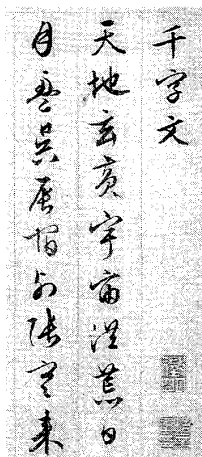 千字文
天地玄黄宇宙洪荒日
月盈昃辰宿列張寒来